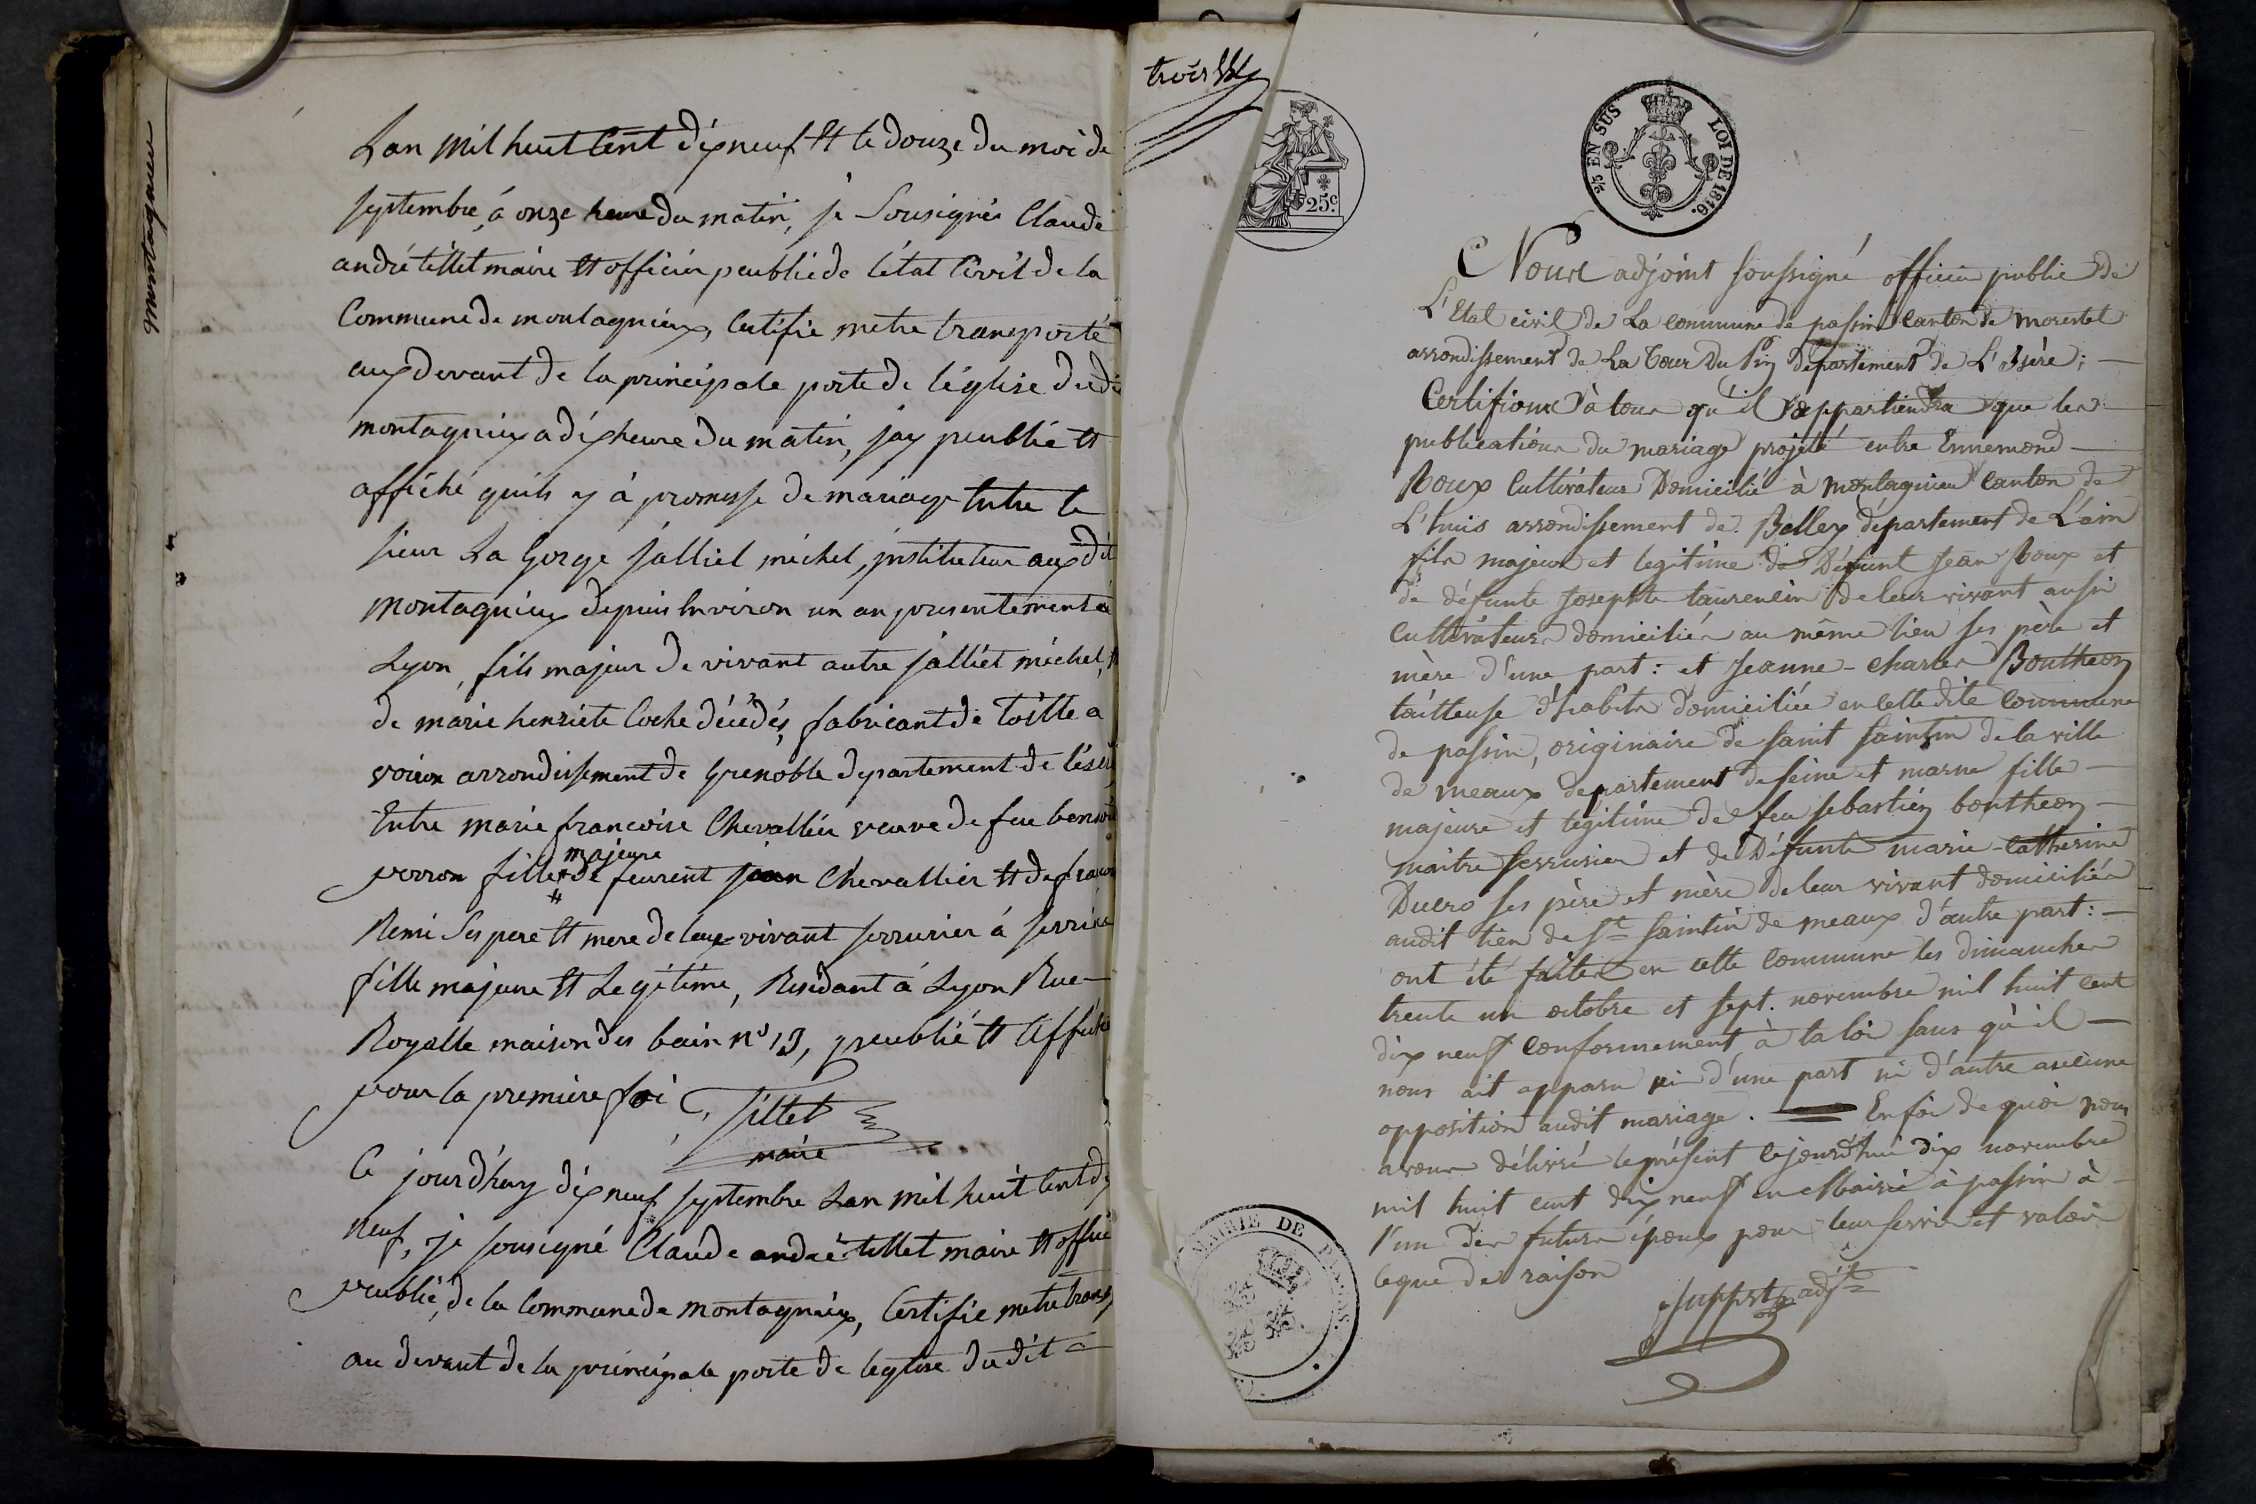 montagnieu
Lan mil huit Cent dix neuf et le douze du moi de
septembre, á onze heure du matin, je Sousignés Claude
andré tillet maire et officier peublic de létat Civil de la
Commune de montagnieux, Certifie metre transporté
aux devant de la principale porte de léglise dudi
montagnieux a dix heure du matin, jay peublié et
affiché quils y á promesse de mariage Entre le
sieur La Gorge jalliet michel, jnstituteur aux dit
montagnieux depuis Environ un an presentement á
Lyon, fils majeur de vivant autre jalliet michel, et
de marie henriete Coche décédés, fabricant de Toille a
voiron arrondissement de Grenoble departement de lésere
Entre marie francoise Chevallier veuve de feu benoit
majeure
perron fille de feurent jean Chevallier et de
Remi Ses pere et mere de leur vivant serrurier á
fille majeure et Legitime, Residant á Lyon Rue
Royalle maison des bain n° 13, peublié et affiché
pour la premiere foi
Tillet
maire
Ce jourdhuy dix neuf septembre Lan mil huit Cent dix
neuf, je sousigné Claude andré tillet maire et officier
peublic, de la Commune de montagnieux, Certifie metre
au devant de la principale porte de leglise du dit
trois
25 c.
2/5 EN SUS LOI DE 1816.
Nous adjoint soussigné officier public de
L'Etat civil de La commune de passin canton de morestel
arrondissement de La Tour Du Pin département de L'Isère;
Certifions à tous qu'il appartiendra que les
publications du mariage projeté entre Ennemond
Roux Cultivateur Domicilié à montagnieu canton de
L'huis arrondissement de Belley département de L'ain
fils majeur et legitime de Défunt Jean Roux et
de défunte Josephte taurencin de leur vivant aussi
cultivateurs domiciliés au même lieu ses père et
mère d'une part: et Jeanne-Charles Boutheon
tailleuse d'habits domiciliée en cette dite commune
de passin, originaire de saint saintin de la ville
de meaux departement de seine et marne fille
majeure et légitime de feu sebastien boutheon
maitre serrurier et de Défunte marie-Catherine
Ducro ses père et mère de leur vivant domiciliés
audit lieu de St saintin de meaux d'autre part:
ont été faites en cette commune les dimanches
trente un octobre et sept. novembre mil huit cent
dix neuf conformement à la loi sans qu'il
nous ait apparu ni d'une part ni d'autre aucune
opposition audit mariage. En foi de quoi nous
avons délivré le présent cejourd'hui dix novembre
mil huit cent dix neuf en Mairie à passin à
l'un des futurs époux pour leur servir et valoir
ce que de raison
adjt
MAIRIE DE PASSIN.